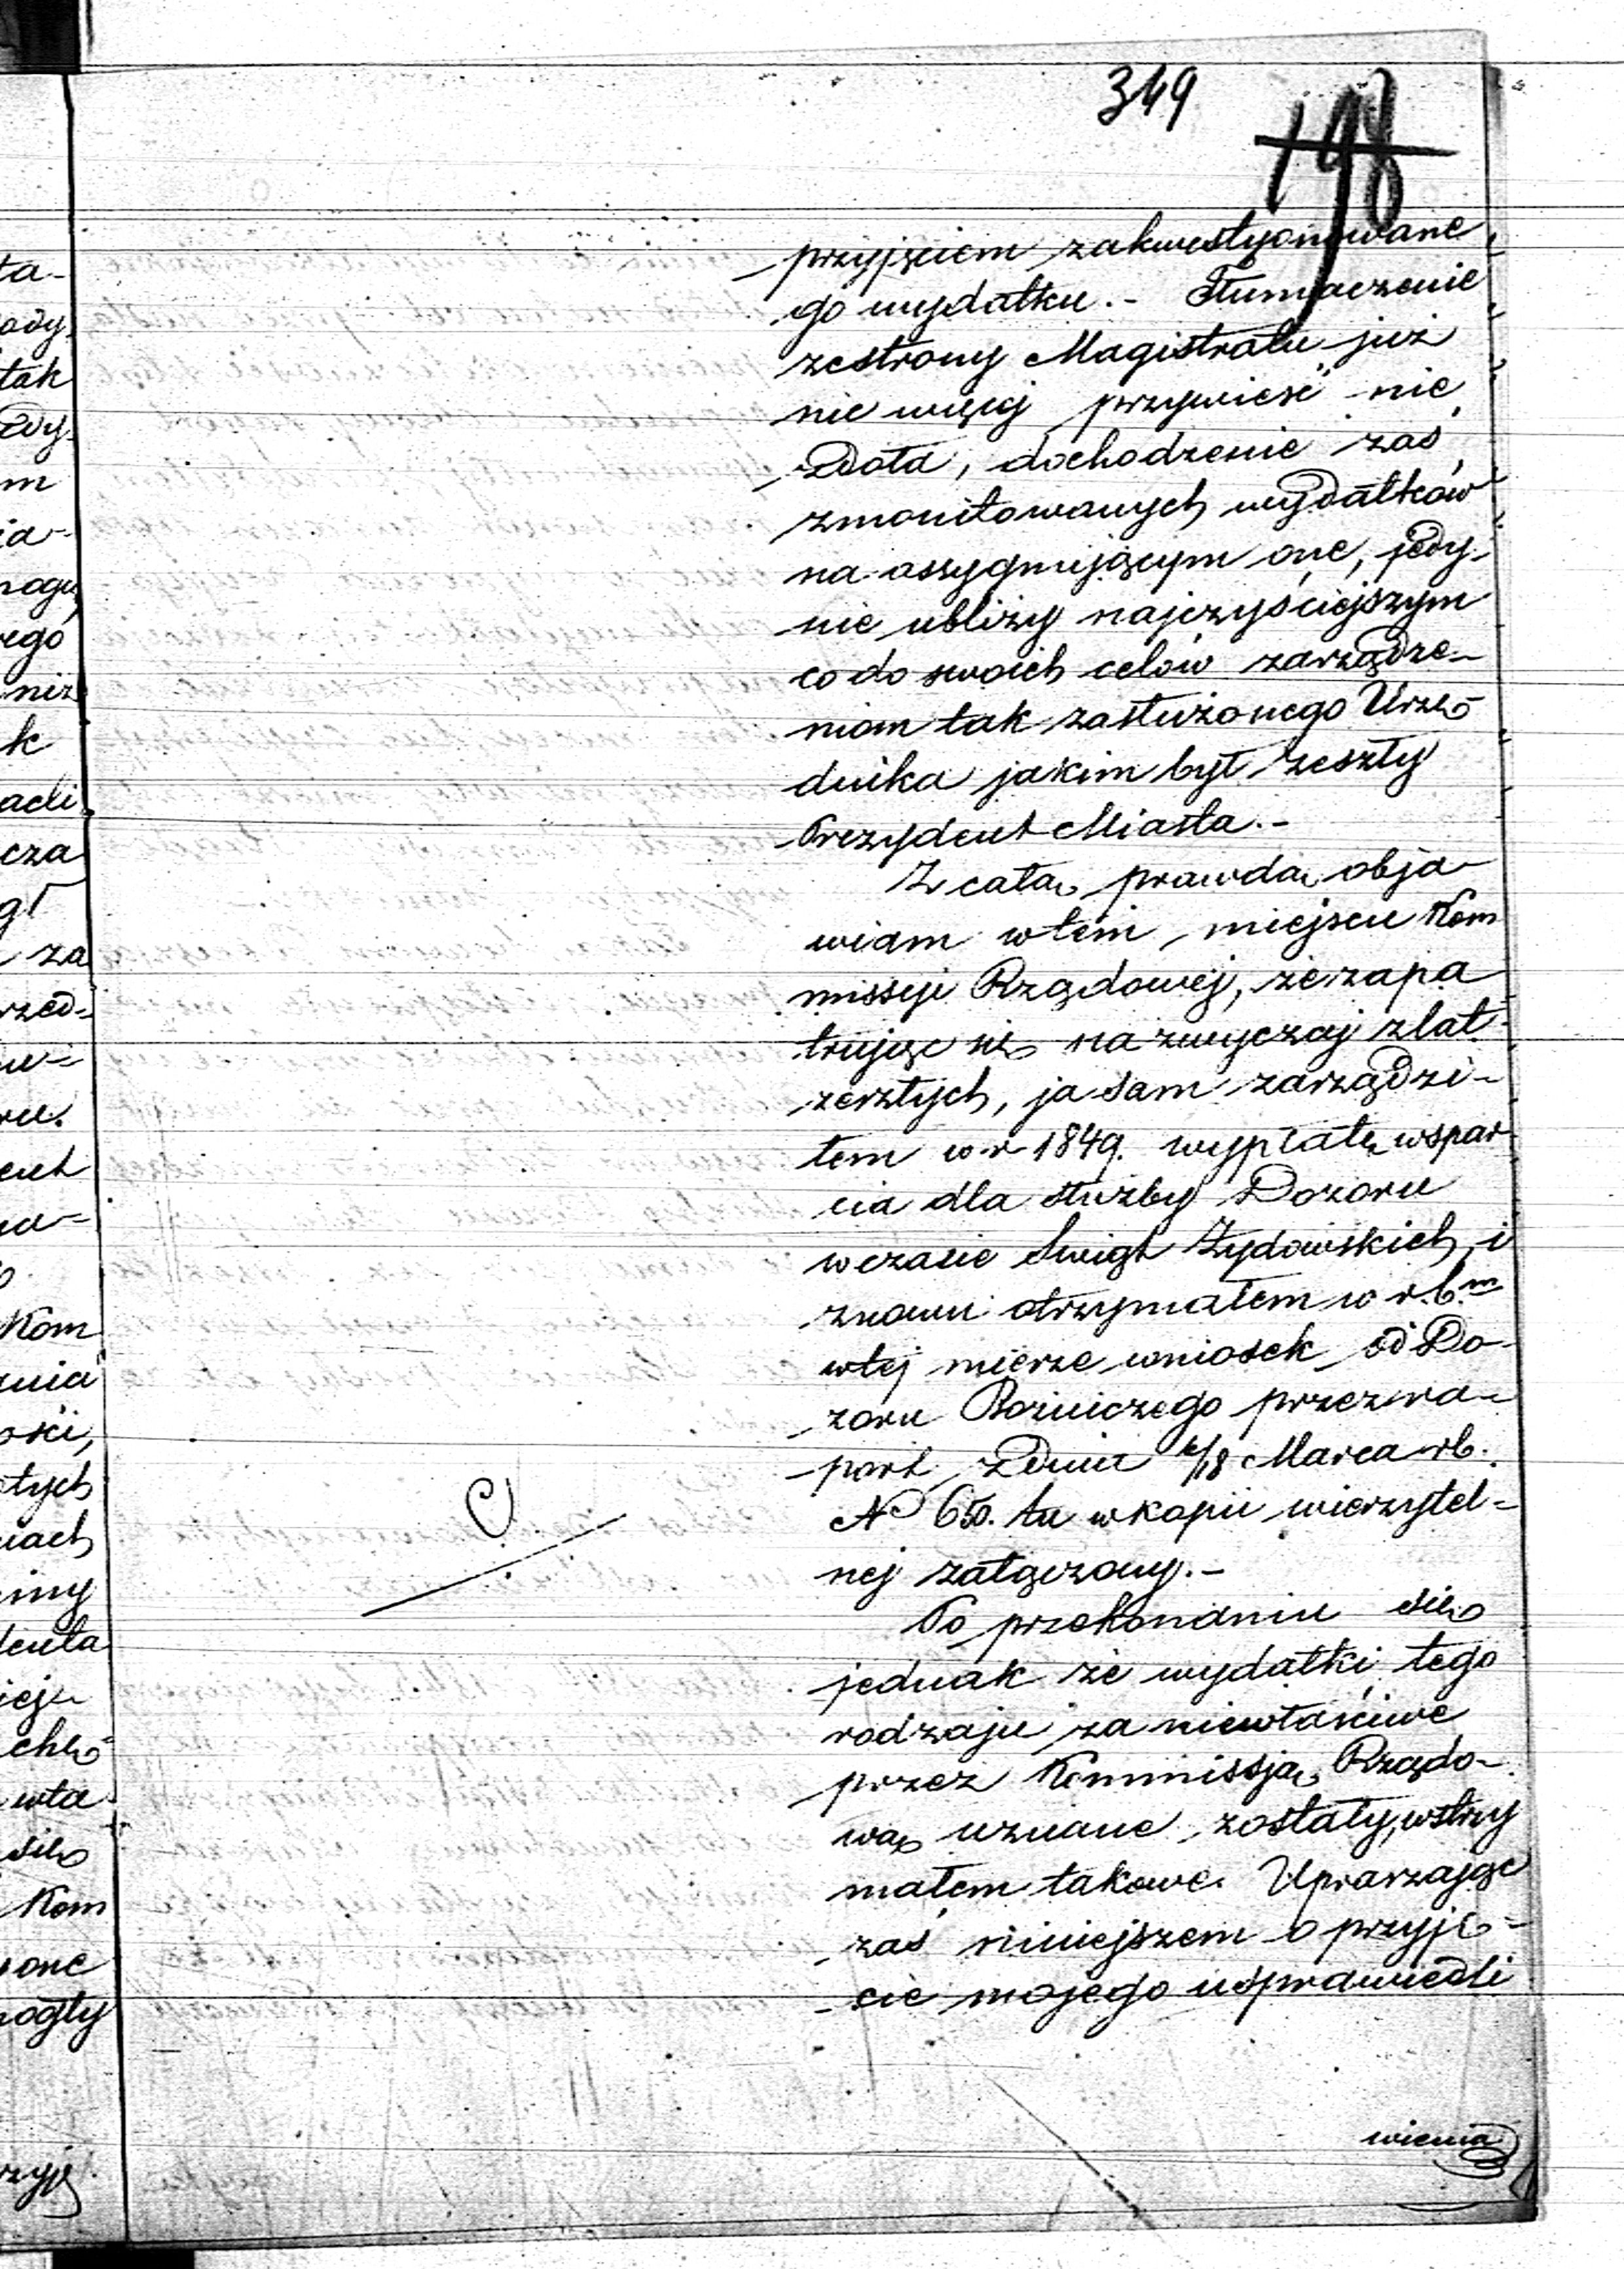 349
198
przyjęciem zakwestyonowane
go wydatku.- Tłumaczenie
zestrony Magistratu już
nic więcej przywieść nie
zdoła, dochodzenie zaś
zmonitowanych wydatków
na assygnującym one, jedy-
nie ubliży najczyściejszym
co do swoich celów zarządze-
niom tak zasłużonego Urzę-
dnika jakim był zeszły
Prezydent Miasta.-
Z całą prawdą obja-
wiam wtem miejscu Kom
missyi Rządowej, że zapa
trując się na zwyczaj zlat
zeszłych, ja sam zarządzi-
łem w r. 1849. wypłatę wspar
cia dla służby Dozoru
wczasie Świąt Żydowskich, i
znowu otrzymałem w r. b.m
wtej mierze wniosek od Do-
zoru Bożniczego przez ra-
port z dnia 6/18 Marca rb.
No 650. tu w kopii wierzytel-
nej załączony.-
C
Po przekonaniu się
jednak że wydatki tego
rodzaju za niewłaściwe
przez Kommissją Rządo-
wą uznane zostały, wstrzy
małem takowe. Upraszając
zaś niniejszem o przyję-
cie mojego usprawiedli
wienia